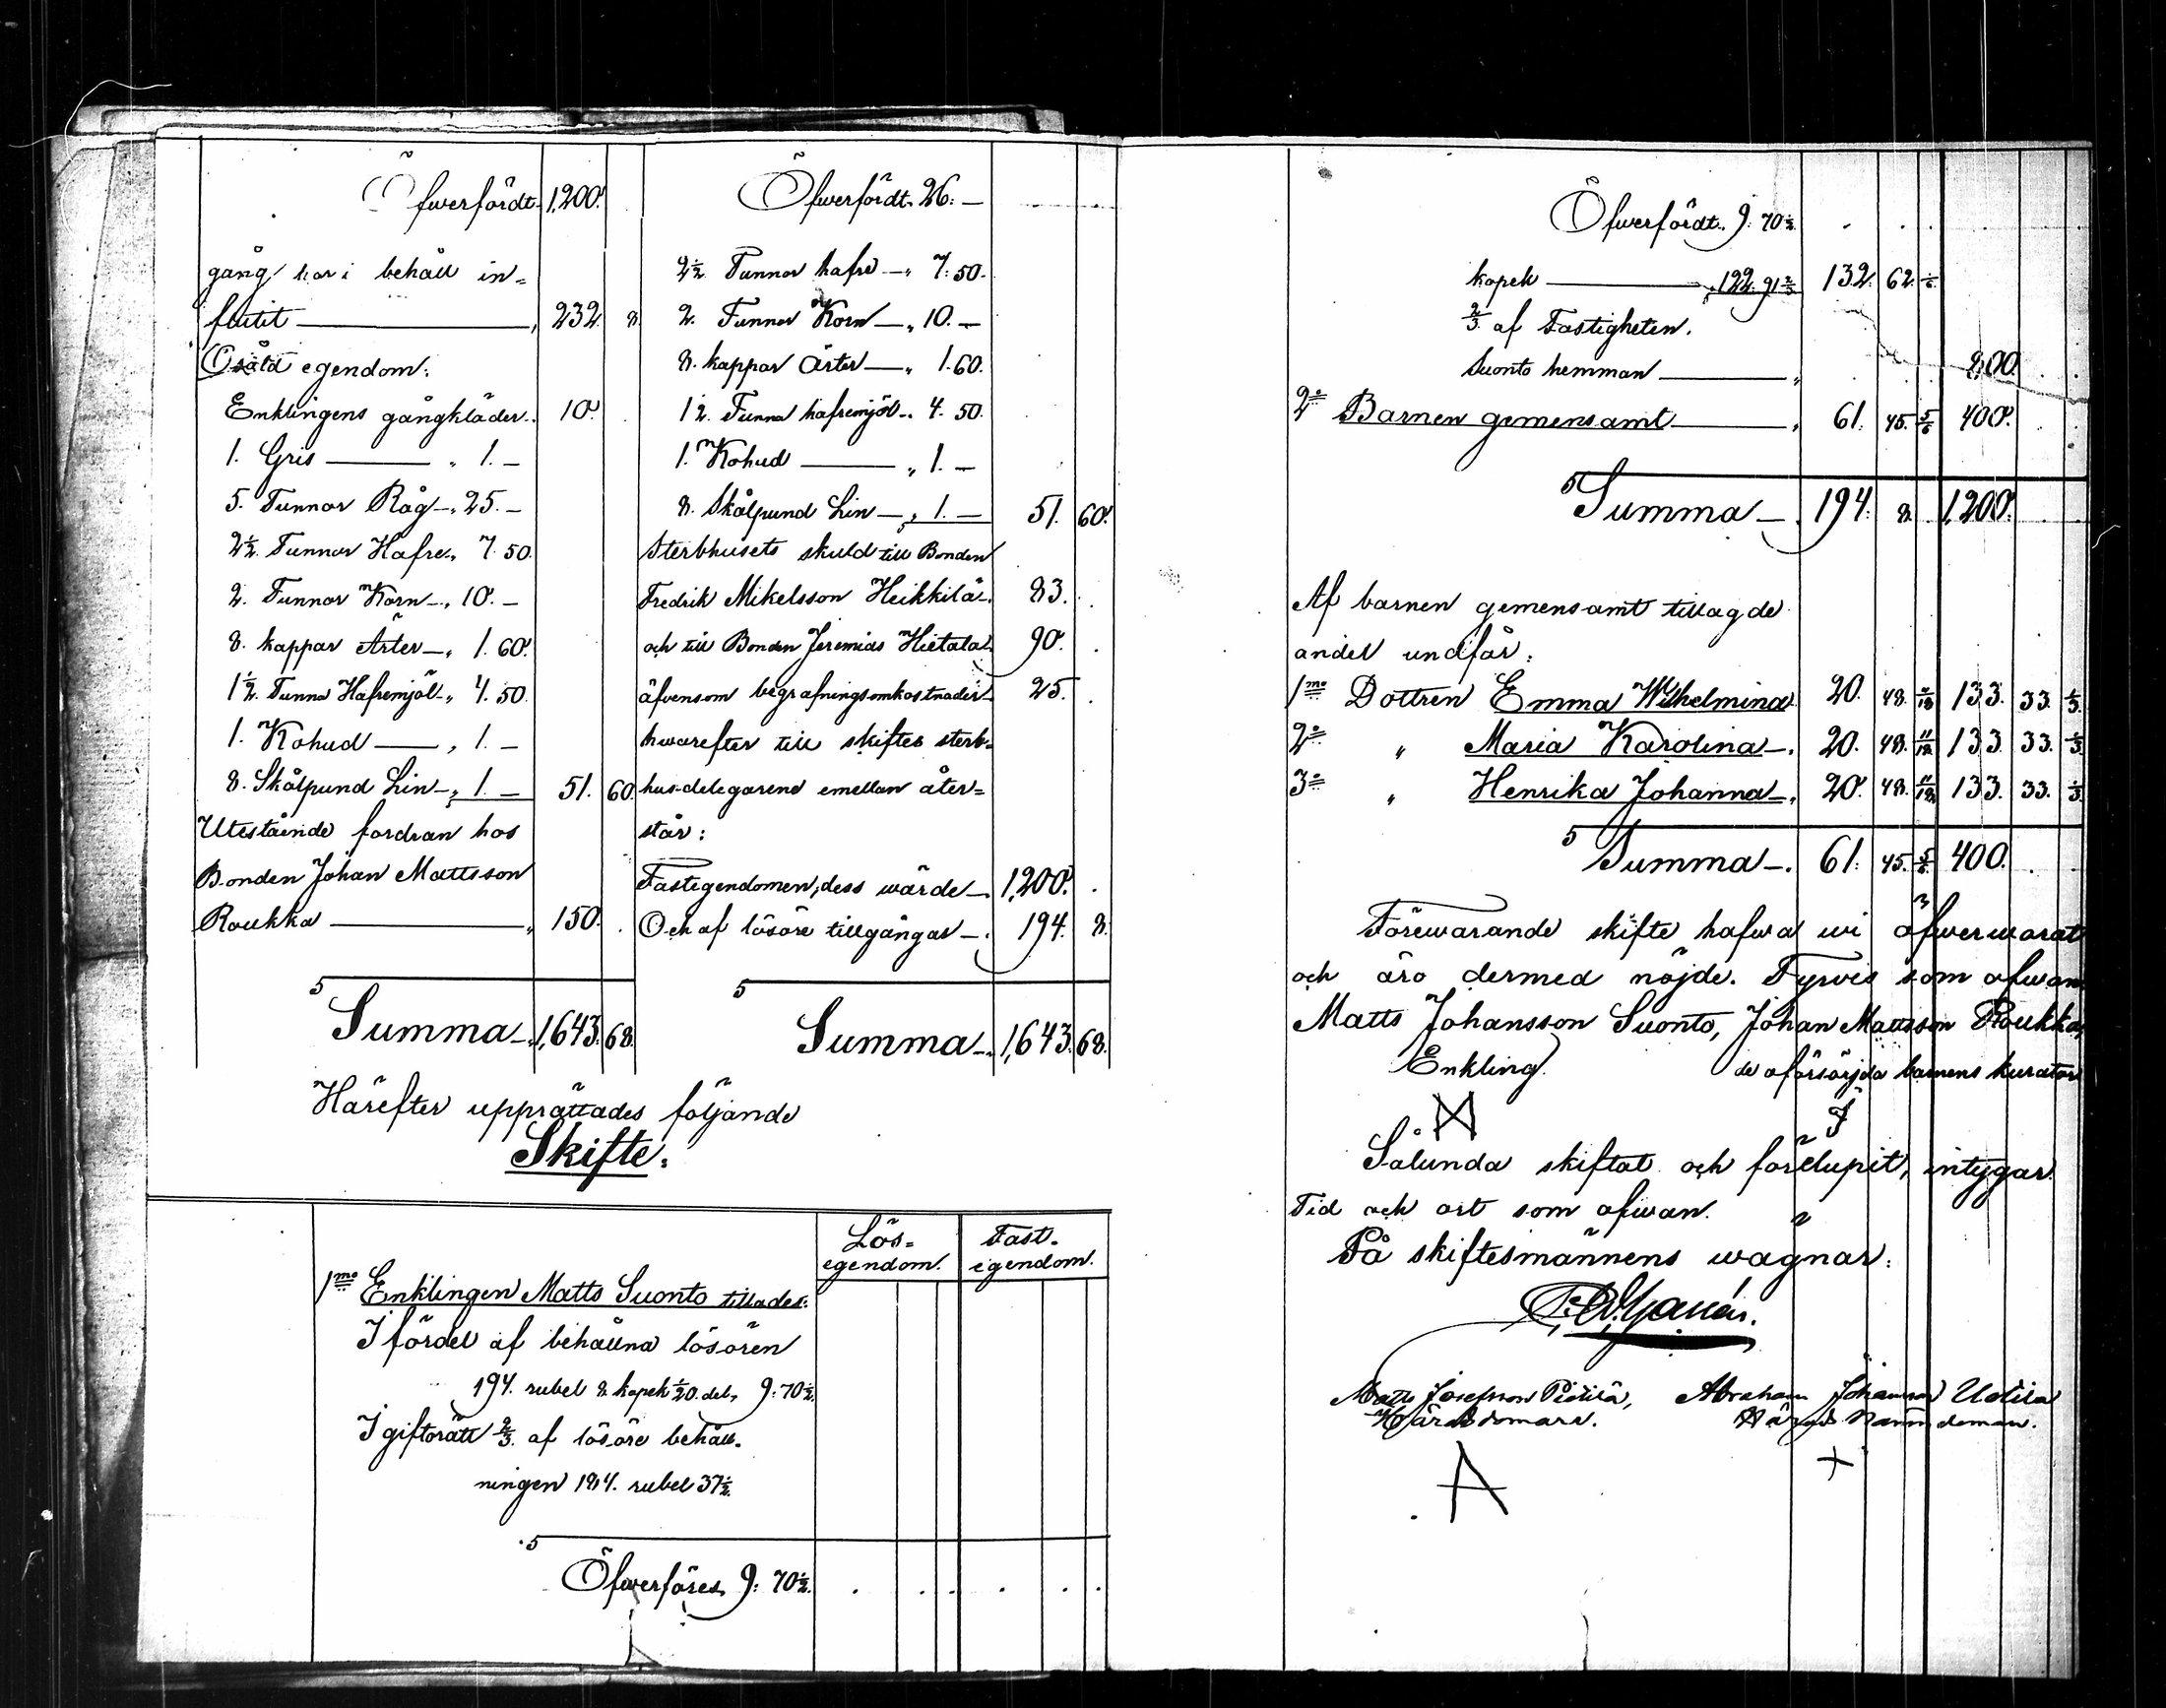 Öfwerfördt 1,200.
gång har i behåll in=
flutit — „ 232. 8.
Osåld egendom:
Enklingens gångkläder „ 10.
1. Gris — „ 1. —
5. Tunnor Råg — „ 25. —
2½. Tunnor Hafre „ 7. 50.
2. Tunnor Korn — „ 10. —
8. kappar Ärter — „ 1. 60.
1½. Tunna Hafremjöl — „ 4. 50.
1. Kohud — „ 1. —
8. Skålpund Lin — „ 1. — 51. 60.
Utestående fordran hos
Bonden Johan Mattsson
Roukka — „ 150.
Summa — 1,643. 68.
Öfwerfördt 26: —
2½ Tunnor hafre — „ 7: 50.
2. Tunnor Korn — „ 10. —
8. kappar Ärter — „ 1. 60.
1½. Tunna hafremjöl — „ 4. 50.
1. Kohud — „ 1. —
8. Skålpund Lin — „ 1. — 51. 60.
Sterbhusets skuld till Bonden
Fredrik Mikelsson Heikkilä — 83.
och till Bonden Jeremias Hietala 90.
äfvensom begrafningsomkostnader 25.
hwarefter till skiftes sterb=
husdelegarene emellan åter=
står:
Fastegendomen, dess wärde — 1,200.
Och af lösöre tillgångar — 194. 8.
Summa — 1,643. 68.
Härefter upprättades följande
Skifte:
Lös= egendom. Fast= egendom.
1mo Enklingen Matts Suonto tillades:
I fördel af behållna lösören
194. rubel 8 kopek 1/20. del „ 9: 70½.
I giftorätt 2/3. af lösöre behåll-
ningen 184. rubel 37½.
Öfwerföres 9: 70½.
Öfwerfördt 9: 70½.
kopek — „ 122. 91 2/3 132. 62. 1/6
2/3. af Fastigheten.
Suonto hemman — „ 800.
2o Barnen gemensamt — „ 61. 45. 5/6 400.
Summa — 194. 8. 1,200.
Af barnen gemensamt tillagde
andel undfår:
1mo Dottren Emma Wilhelmina 20. 48. 11/18 133. 33. 1/3.
2o „ Maria Karolina — 20. 48. 11/18 133. 33. 1/3.
3o „ Henrika Johanna — 20. 48. 11/18 133. 33. 1/3.
Summa — 61. 45. 5/6 400.
Förewarande skifte hafwa wi öfwerwarat
och äro dermed nöjde. Tyrvis som ofwan
Matts Johansson Suonto, Johan Mattsson Roukka,
Enkling. de oförsörjda barnens kurator
Sålunda skiftat och förelupit, intygar.
Tid och ort som ofwan.
På skiftesmännens wägnar:
Matts Josefsson Pietilä, Abraham Johansson Uotila
Häradsdomare. Härads Nämndeman.
A +